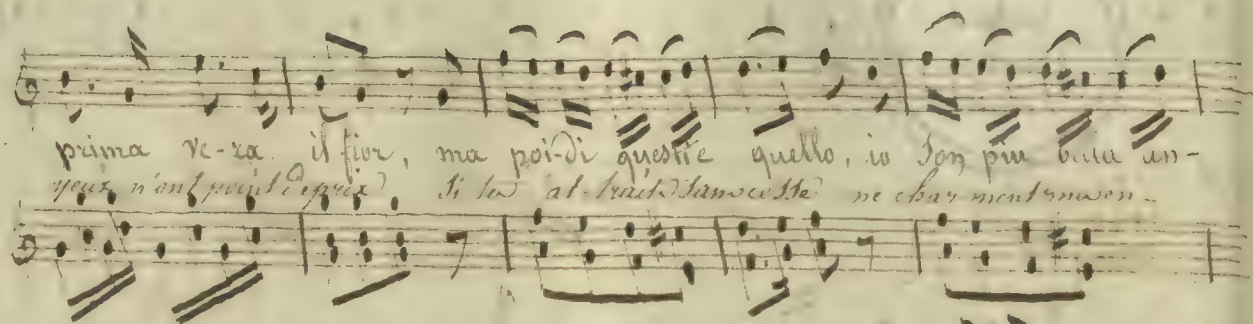 prima ve-ra. il fior, ma poi-di questi e quello, io Son piu bella an-
yeux n'ont point de prix Si tes at-traits Sans cesse ne charment mon en-